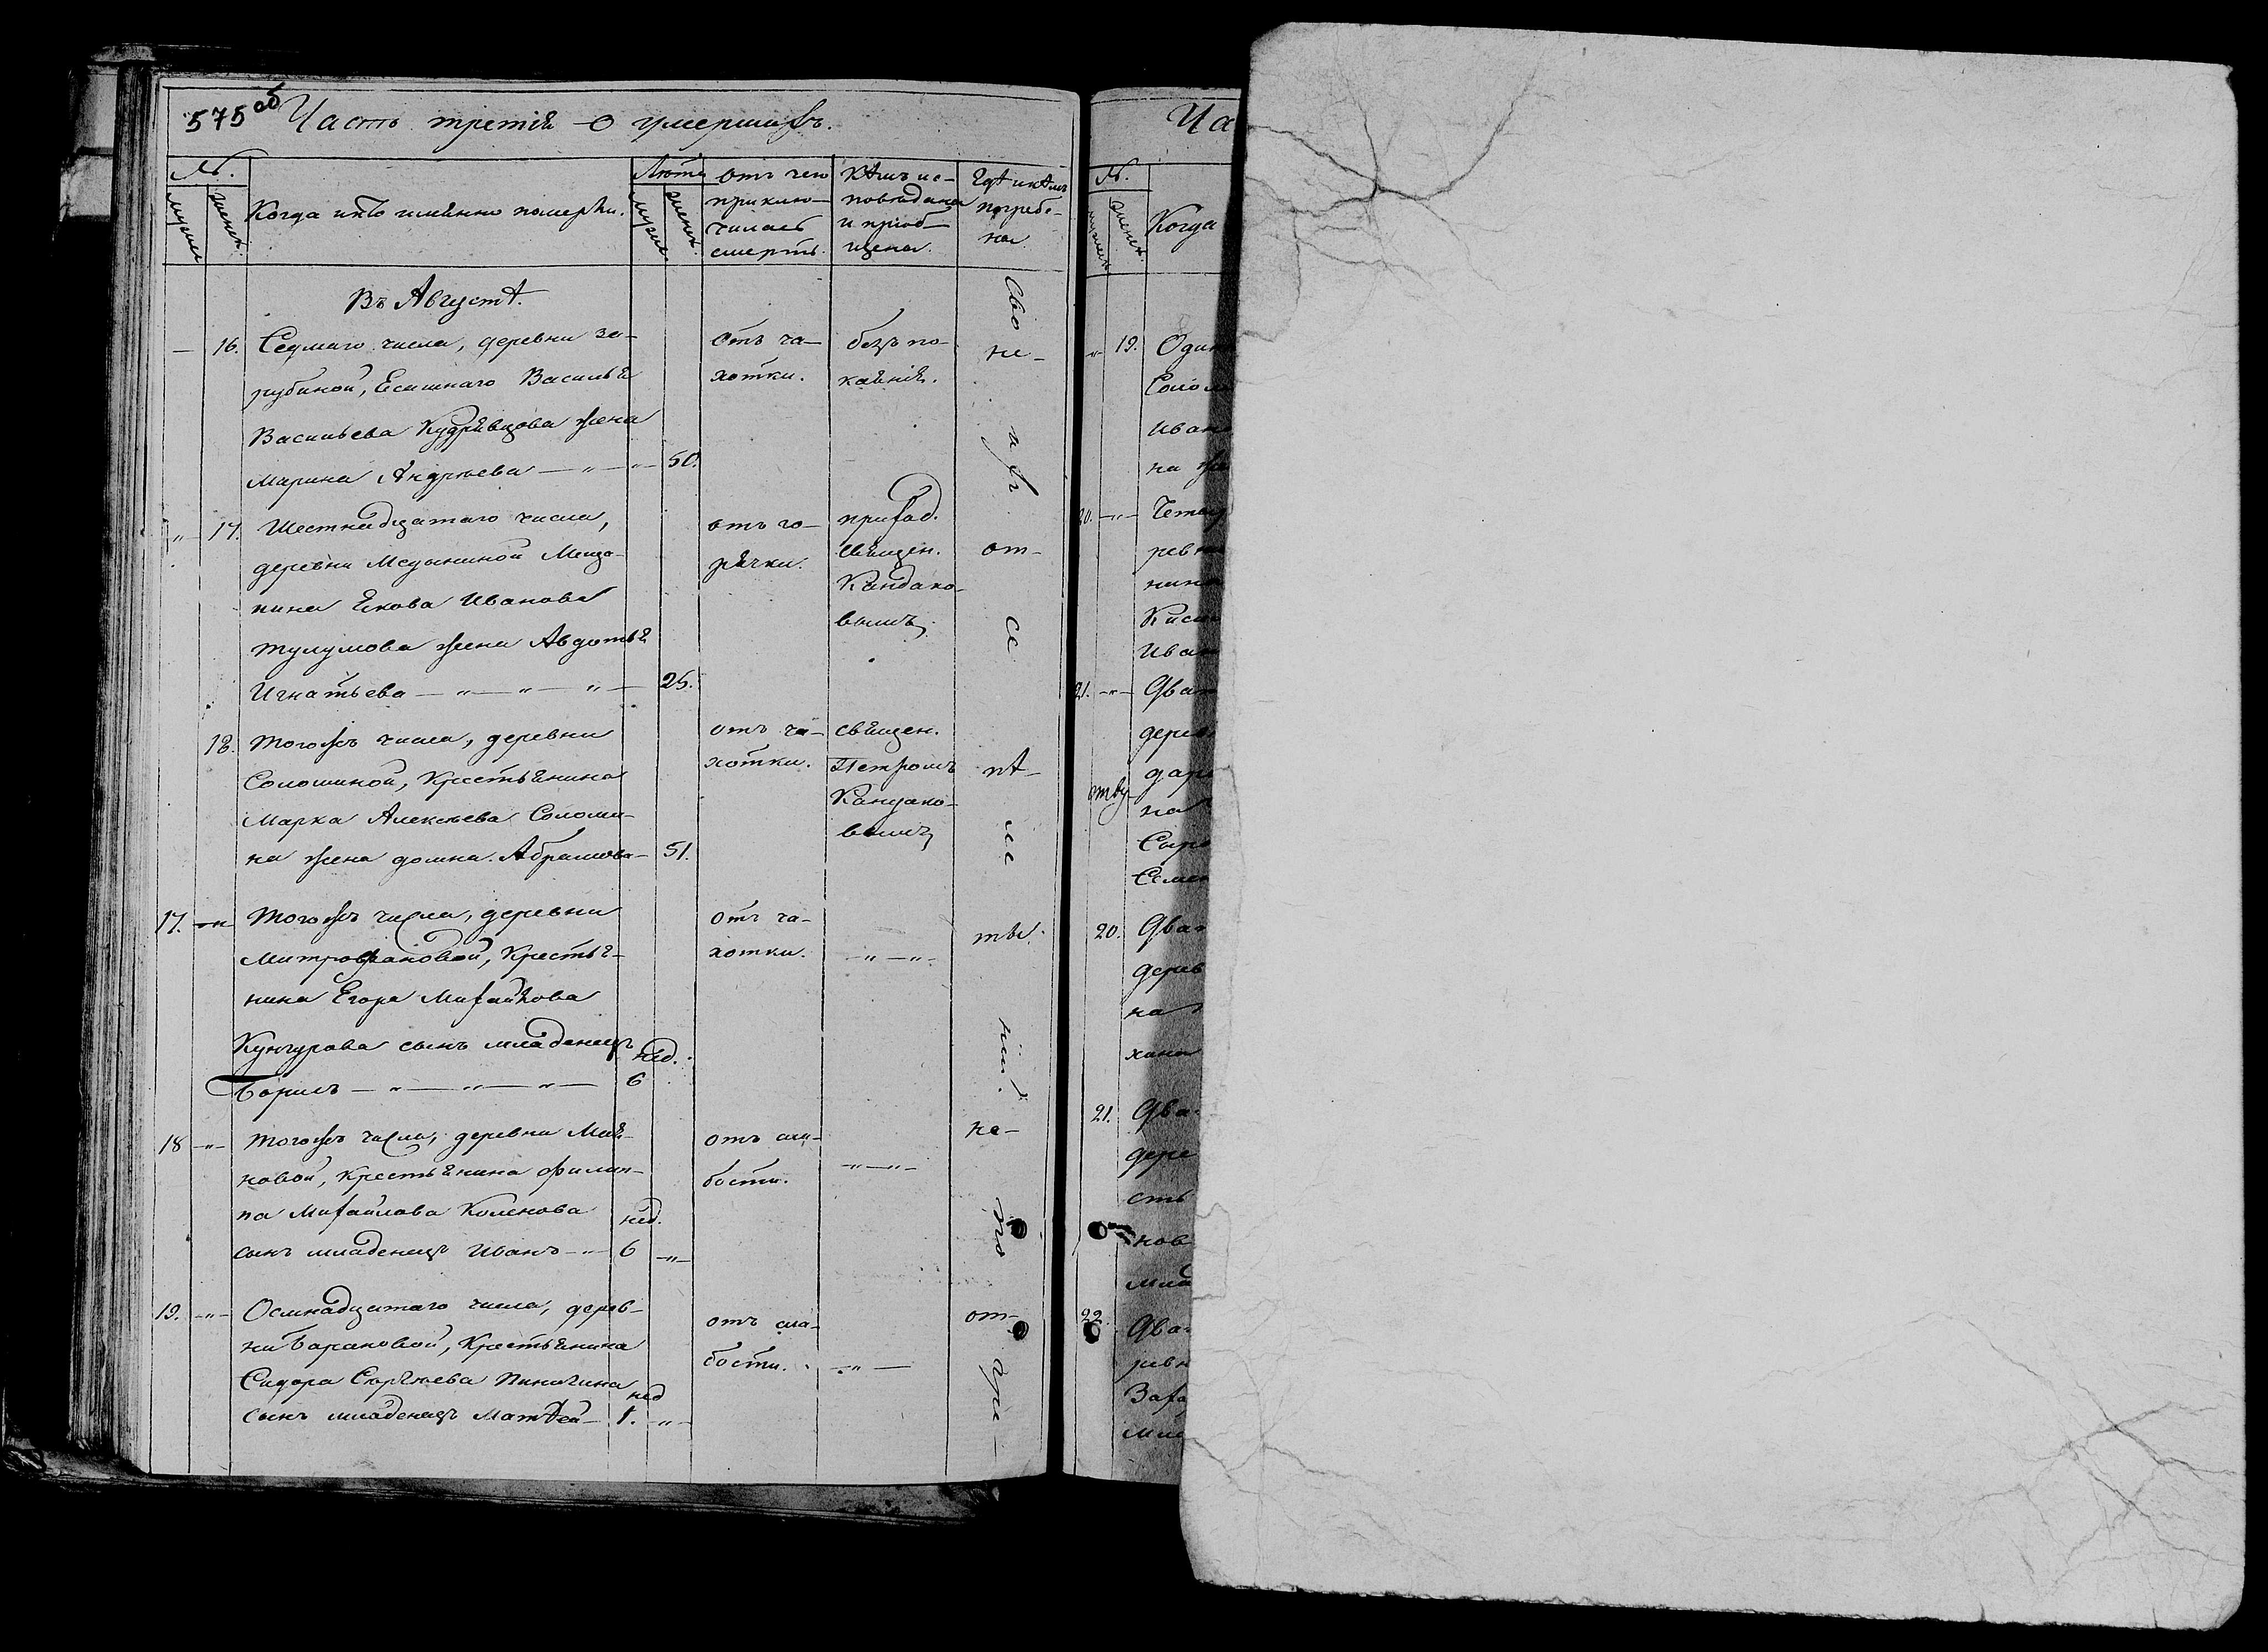 575об
Часть третія о умершихъ.
№.
мужеск
женск.
Когда и кто имянно померли.
Лѣта
мужес.
женск.
отъ чего
приклю-
чилась
смерть.
Кѣмъ ис-
поведаны
и приоб-
щены.
Гдѣ и кѣмъ
погребе-
ны
Въ Августѣ.
— 16. Седмаго числа, деревни за-
рубиной, Ясашнаго Василья
Васильева Кудрявцова жена
Марина Андреева — 50.
отъ ча-
хотки.
безъ по-
каянія.
17. Шестнадцатаго числа,
деревни Медыниной Меща-
нина Якова Иванова
тулумова жена Авдотья
Игнатьева — 25.
отъ го-
рячки.
приход.
священ.
Кандако-
вымъ.
18. того жъ числа, деревни
Соломиной, Крестьянина
Марка Алексѣева Соломи-
на жена домна Абрамова — 51.
отъ ча-
хотки.
священ.
Петромъ
Кандако-
вымъ
17. того жъ числа, деревни
Митрофановой, Крестья-
нина Егора Михайлова
Кунгурова сынъ младенецъ
Борисъ — нед. 6
отъ ча-
хотки.
18 того жъ числа, деревни
новой, крестьянина Филип-
па Михайлова
сынъ младенецъ Иванъ — нед. 6
отъ сла-
бости.
19. Осмнадцатаго числа, дерев-
ни Барановой, Крестьянина
Сидора Сергѣева Пинигина
сынъ младенецъ Матвей — нед 1.
отъ сла-
бости.
Сво
не-
их
от-
се
пѣ
ме
ты
нii.
на-
по
от-
Ча
№.
женск.
Когда
19. Один
Соло
Иван
на же
20. Четвер
ревн
нина
Кис
Иван
21. Два
дерев
дар
на
Семен
20. Два
дерев
на
хана
21. Два
дере
сть
нов
мла
22. Два
ревн
Заха
мла